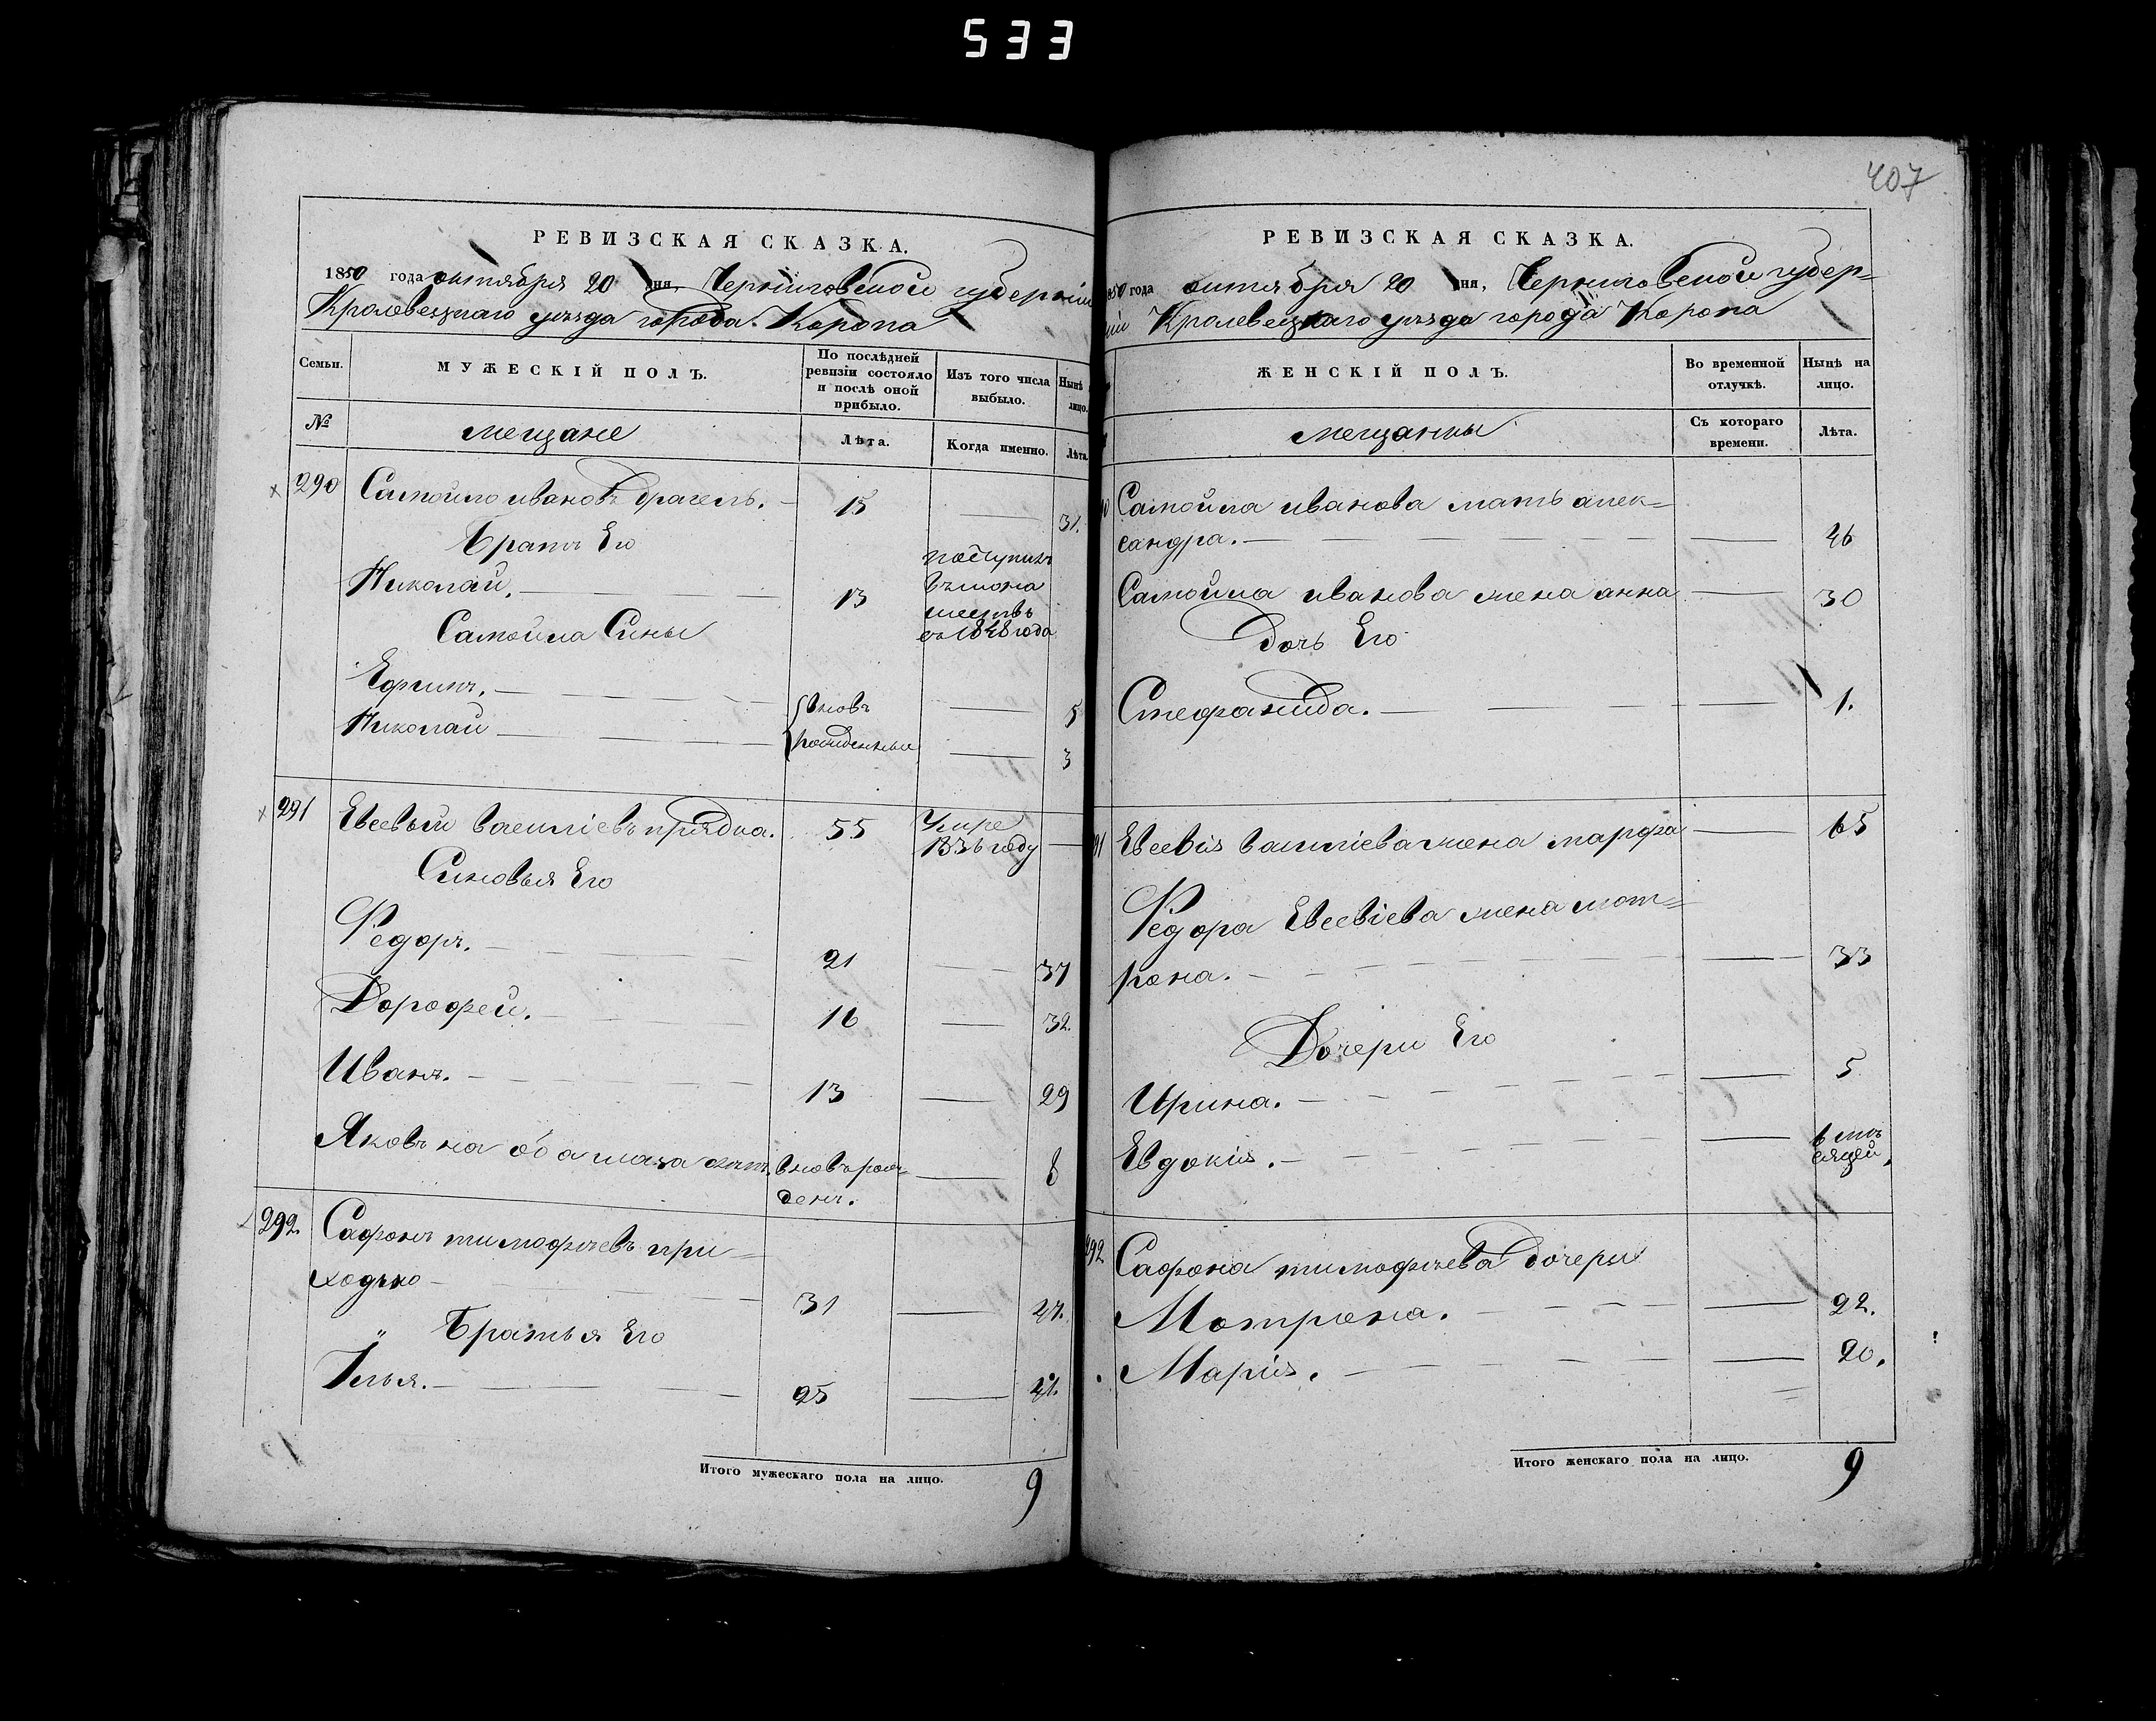 533
407
РЕВИЗСКАЯ СКАЗКА.
1850 года октября 20 дня, Черниговской губерніи
Кролевецкаго уѣзда города Коропа
Семьи.
МУЖЕСКІЙ ПОЛЪ.
По послѣдней
ревизіи состояло
и послѣ оной
прибыло.
Изъ того числа
выбыло.
Нынѣ
лицо.
№
мещане
Лѣта.
Когда именно.
Лѣта.
290 Самойло ивановъ драгель. 15 — 31.
Братъ Его
Николай. 13
поступилъ
въ мона
шество
въ 1848 года
Самойла Сины
Ефимъ. вновь — 5
Николай рожденные — 3
291 Евсевъй василіевъ прядка. 55
Умре
1836 году —
Синовья Его
Федоръ. 21 — 37
Дорофей. 16 — 32.
Иванъ. 13 — 29
Яковъ на оба глаза вновь рож-
денъ. — 8
292. Сафонъ тимофѣевъ при-
ходько 31 — 47.
" Братья Его
Илья. 25 — 41.
Итого мужескаго пола на лицо. 9
РЕВИЗСКАЯ СКАЗКА.
850 года октября 20 дня, Черниговской губер=
ніи Кролевецкаго уѣзда города Коропа
ЖЕНСКІЙ ПОЛЪ.
Во временной
отлучкѣ.
Нынѣ на
лицо.
мещанки
Съ котораго
времени.
Лѣта.
Самойла иванова мать алек=
сандра. — 46
Самойла иванова жена анна — 30
Дочь Его
Стефанида. — 1.
91 Евсевія василіева жена марфа — 65
Федора Евсевіева жена мот=
рона. — 33
Дочери Его
Ирина. — 5
Евдокія. —
6 мѣ
сяцей.
292 Сафона тимофѣева дочери
Мотрона. — 22.
Марія. — 20.
Итого женскаго пола на лицо. 9